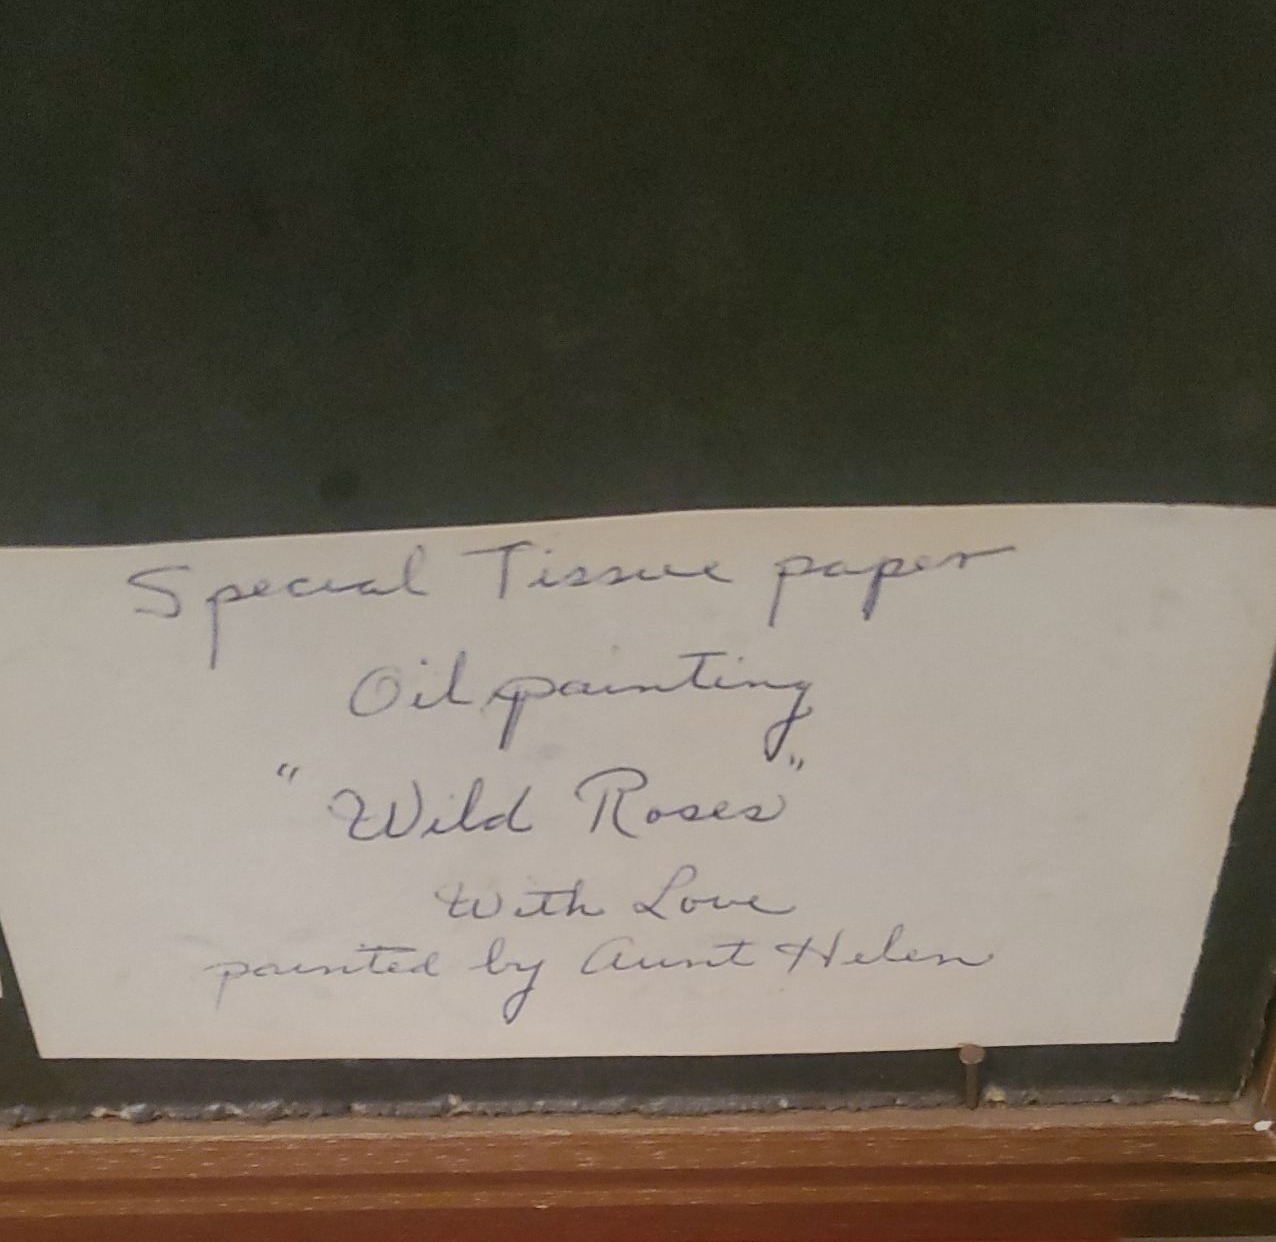 Special Tissue paper
Oil painting
"Wild Roses"
With Love
painted by Aunt Helen